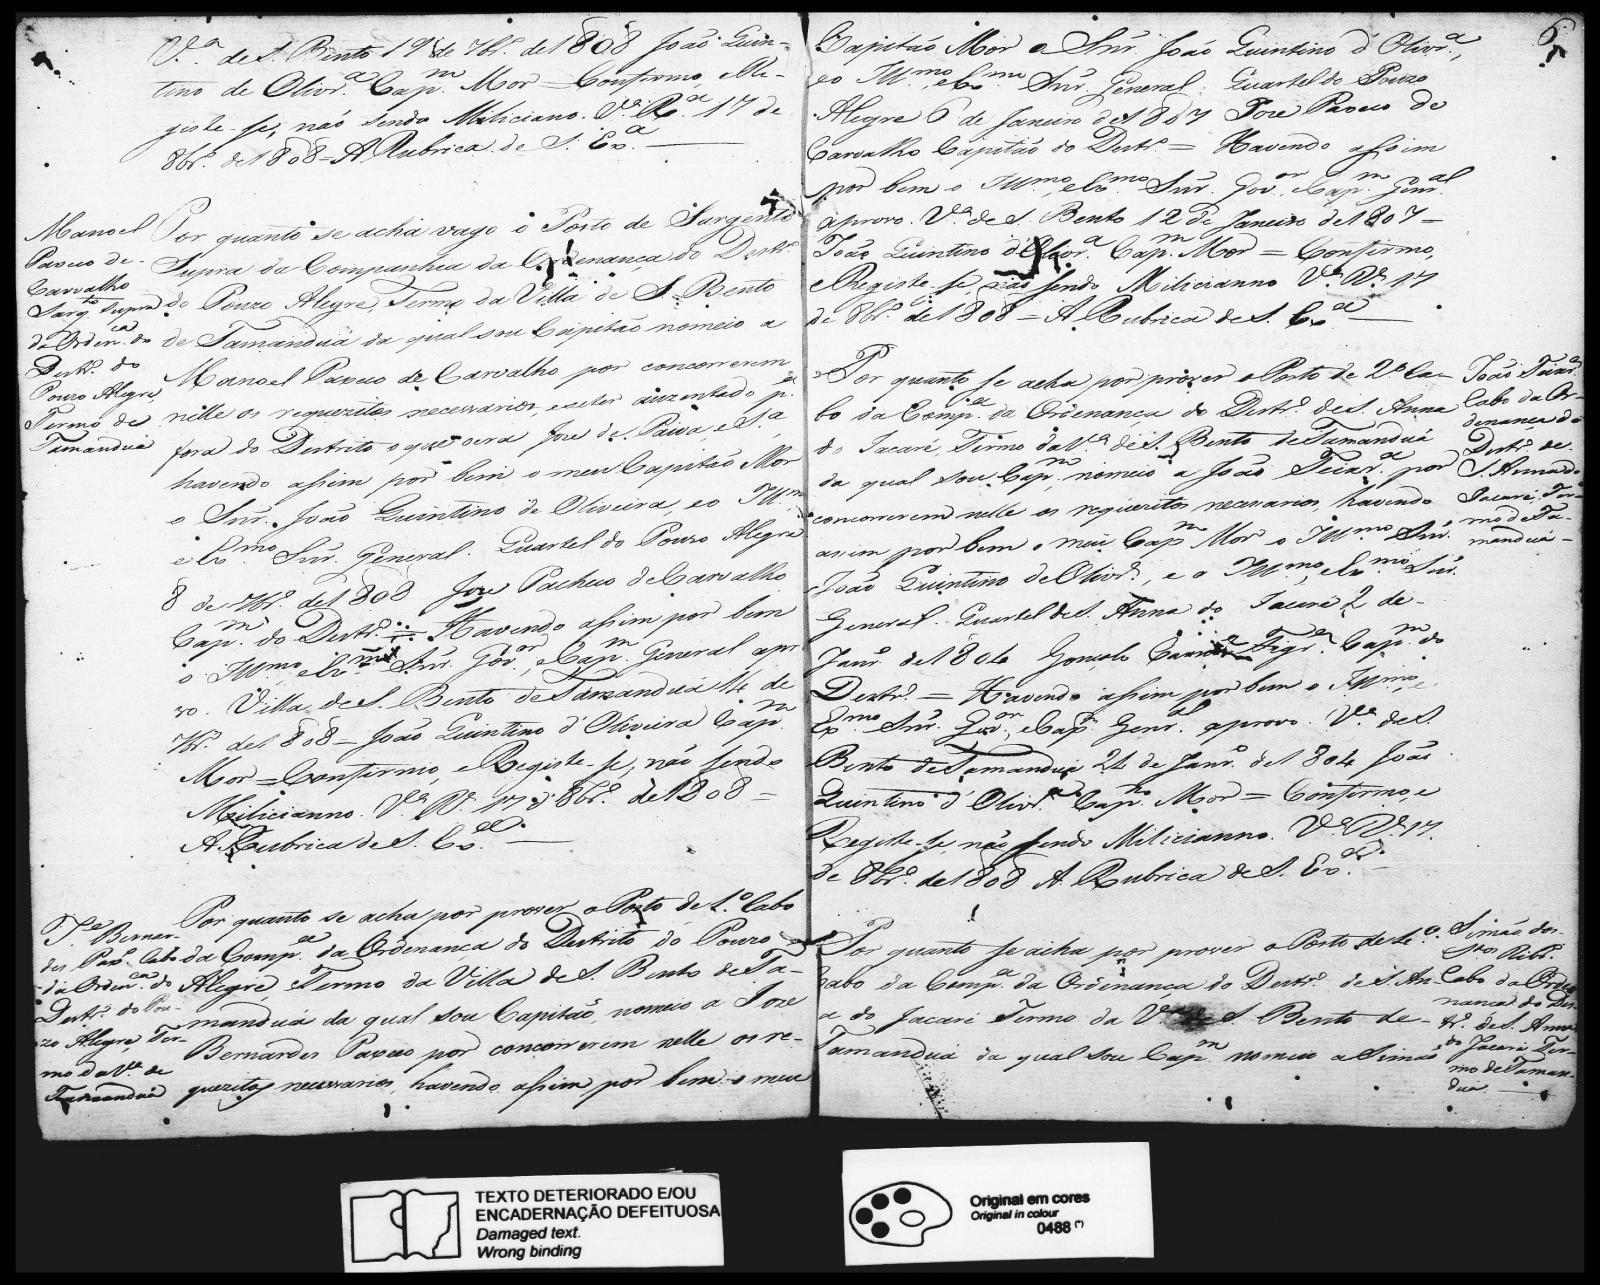 V.ª de S. Bento 19 de 7br.º de 1808 João Quin-
tino de Olivr.ª Cap.m Mor = Confirmo, e Re-
giste-se, não sendo Miliciano. V.ª R.ª 17 de
8br.º de 1808 = A Rubrica de S. Ex.ª
Manoel
Paxeco de
Carvalho
Sarg.to Supra
da Orden.ca do
Destr.º do
Pouzo Alegre,
Termo de
Tamanduá
Por quanto se acha vago o Posto de Sargento
Supra da Companhia da Ordenança do Destr.º
do Pouzo Alegre, Termo da Villa de S. Bento
de Tamanduá da qual sou Capitão nomeio a
Manoel Paxeco de Carvalho por concorrerem
nelle os requezitos necessarios, e se ter auzentado p.ª
fora do Destrito o que o era Joze de Paiva, e S.ª
havendo assim por bem o meu Capitão Mor
o Snr. João Quintino de Oliveira, e o Ill.mo
e Ex.mo Snr. General. Quartel do Pouzo Alegre
8 de 7br.º de 1808 Joze Pacheco de Carvalho
Cap.m do Destr.º = Havendo assim por bem
o Ill.mo, e Ex.mo Snr. Gov.or, e Cap.m General apr
vo. Villa de S. Bento de Tamanduá 14 de
7br.º de 1808 = João Quintino d'Oliveira Cap.m
Mor = Confirmo, e Registe-se, não sendo
Milicianno. V.ª R.ª 17 de 8br.º de 1808 =
A Rubrica de S. Ex.ª
J.e Bernar-
des Pax.º Cabo
da Orden.ca do
Destr.º do Pou-
zo Alegre, Ter-
mo da V.ª de
Tamanduá
Por quanto se acha por prover o Posto de 1.º Cabo
da Comp.ª da Ordenança do Destrito do Pouzo
Alegre, Termo da Villa de S. Bento de Ta-
manduá da qual sou Capitão, nomeio a Joze
Bernardes Paxeco por concorrerem nelle os re-
quezitos necessarios, havendo assim por bem o meu
6
Capitão Mor o Snr. João Quintino d'Olivr.ª,
e o Ill.mo, e Ex.mo Snr. General. Quartel do Pouzo
Alegre 6 de Janeiro de 1807 Joze Paxeco de
Carvalho Capitão do Destr.º = Havendo assim
por bem o Ill.mo, e Ex.mo Snr. Gov.or e Cap.m Gener.al
aprovo. V.ª de S. Bento 12 de Janeiro de 1807 =
João Quintino d'Olivr.ª Cap.m Mor = Confirmo,
e Registe-se não sendo Milicianno V.ª R.ª 17
de 8br.º de 1808 = A Rubrica de S. Ex.ª
Por quanto se acha por prover o Posto de 2.º Ca-
bo da Comp.ª da Ordenança do Destr.º de S. Anna
do Jacaré, Termo da V.ª de S. Bento de Tamanduá
da qual sou Cap.m, nomeio a João Teixr.ª por
concorrerem nelle os requezitos necessarios, havendo
assim por bem o meu Cap.m Mor o Ill.mo Snr.
João Quintino de Olivr.ª, e o Ill.mo, e Ex.mo Snr.
General. Quartel de S. Anna do Jacaré 2 de
Janr.º de 1804 Gonçalo Figr.ª Cap.m do
Destr.º = Havendo assim por bem o Ill.mo, e
Ex.mo Snr. Gov.or, e Cap.m Gener.al aprovo. V.ª de S.
Bento de Tamanduá 24 de Janr.º de 1804 João
Quintino d'Olivr.ª Cap.m Mor = Confirmo, e
Registe-se, não sendo Milicianno. V.ª R.ª 17
de 8br.º de 1808 A Rubrica de S. Ex.ª
João Teixr.ª
Cabo da Or-
denança do
Destr.º de
S. Anna do
Jacaré, Ter-
mo de Ta-
manduá -
Por quanto se acha por prover o Posto de 1.º
Cabo da Comp.ª da Ordenança do Destr.º de S. An-
a do Jacaré Termo da V.ª de S. Bento de
Tamanduá da qual sou Cap.m nomeio a Simão
Simão dos
S.tos Ribr.º
Cabo da Orde-
nança do Des-
tr.º de S. Anna
do Jacaré Ter-
mo de Taman-
duá
TEXTO DETERIORADO E/OU
ENCADERNAÇÃO DEFEITUOSA
Damaged text.
Wrong binding
Original em cores
Original in colour
0488 (*)